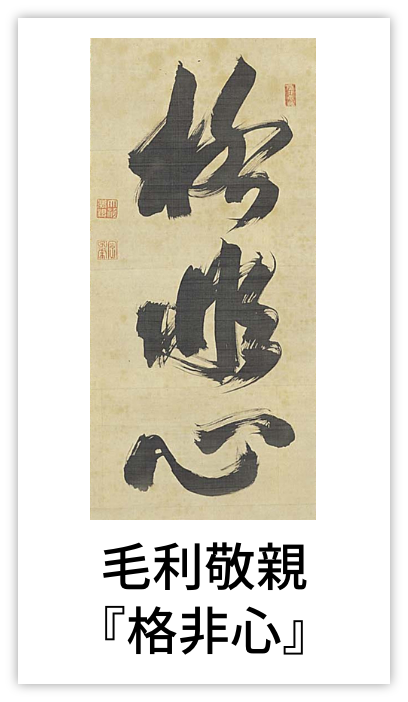 格非心
毛利敬親
『格非心』